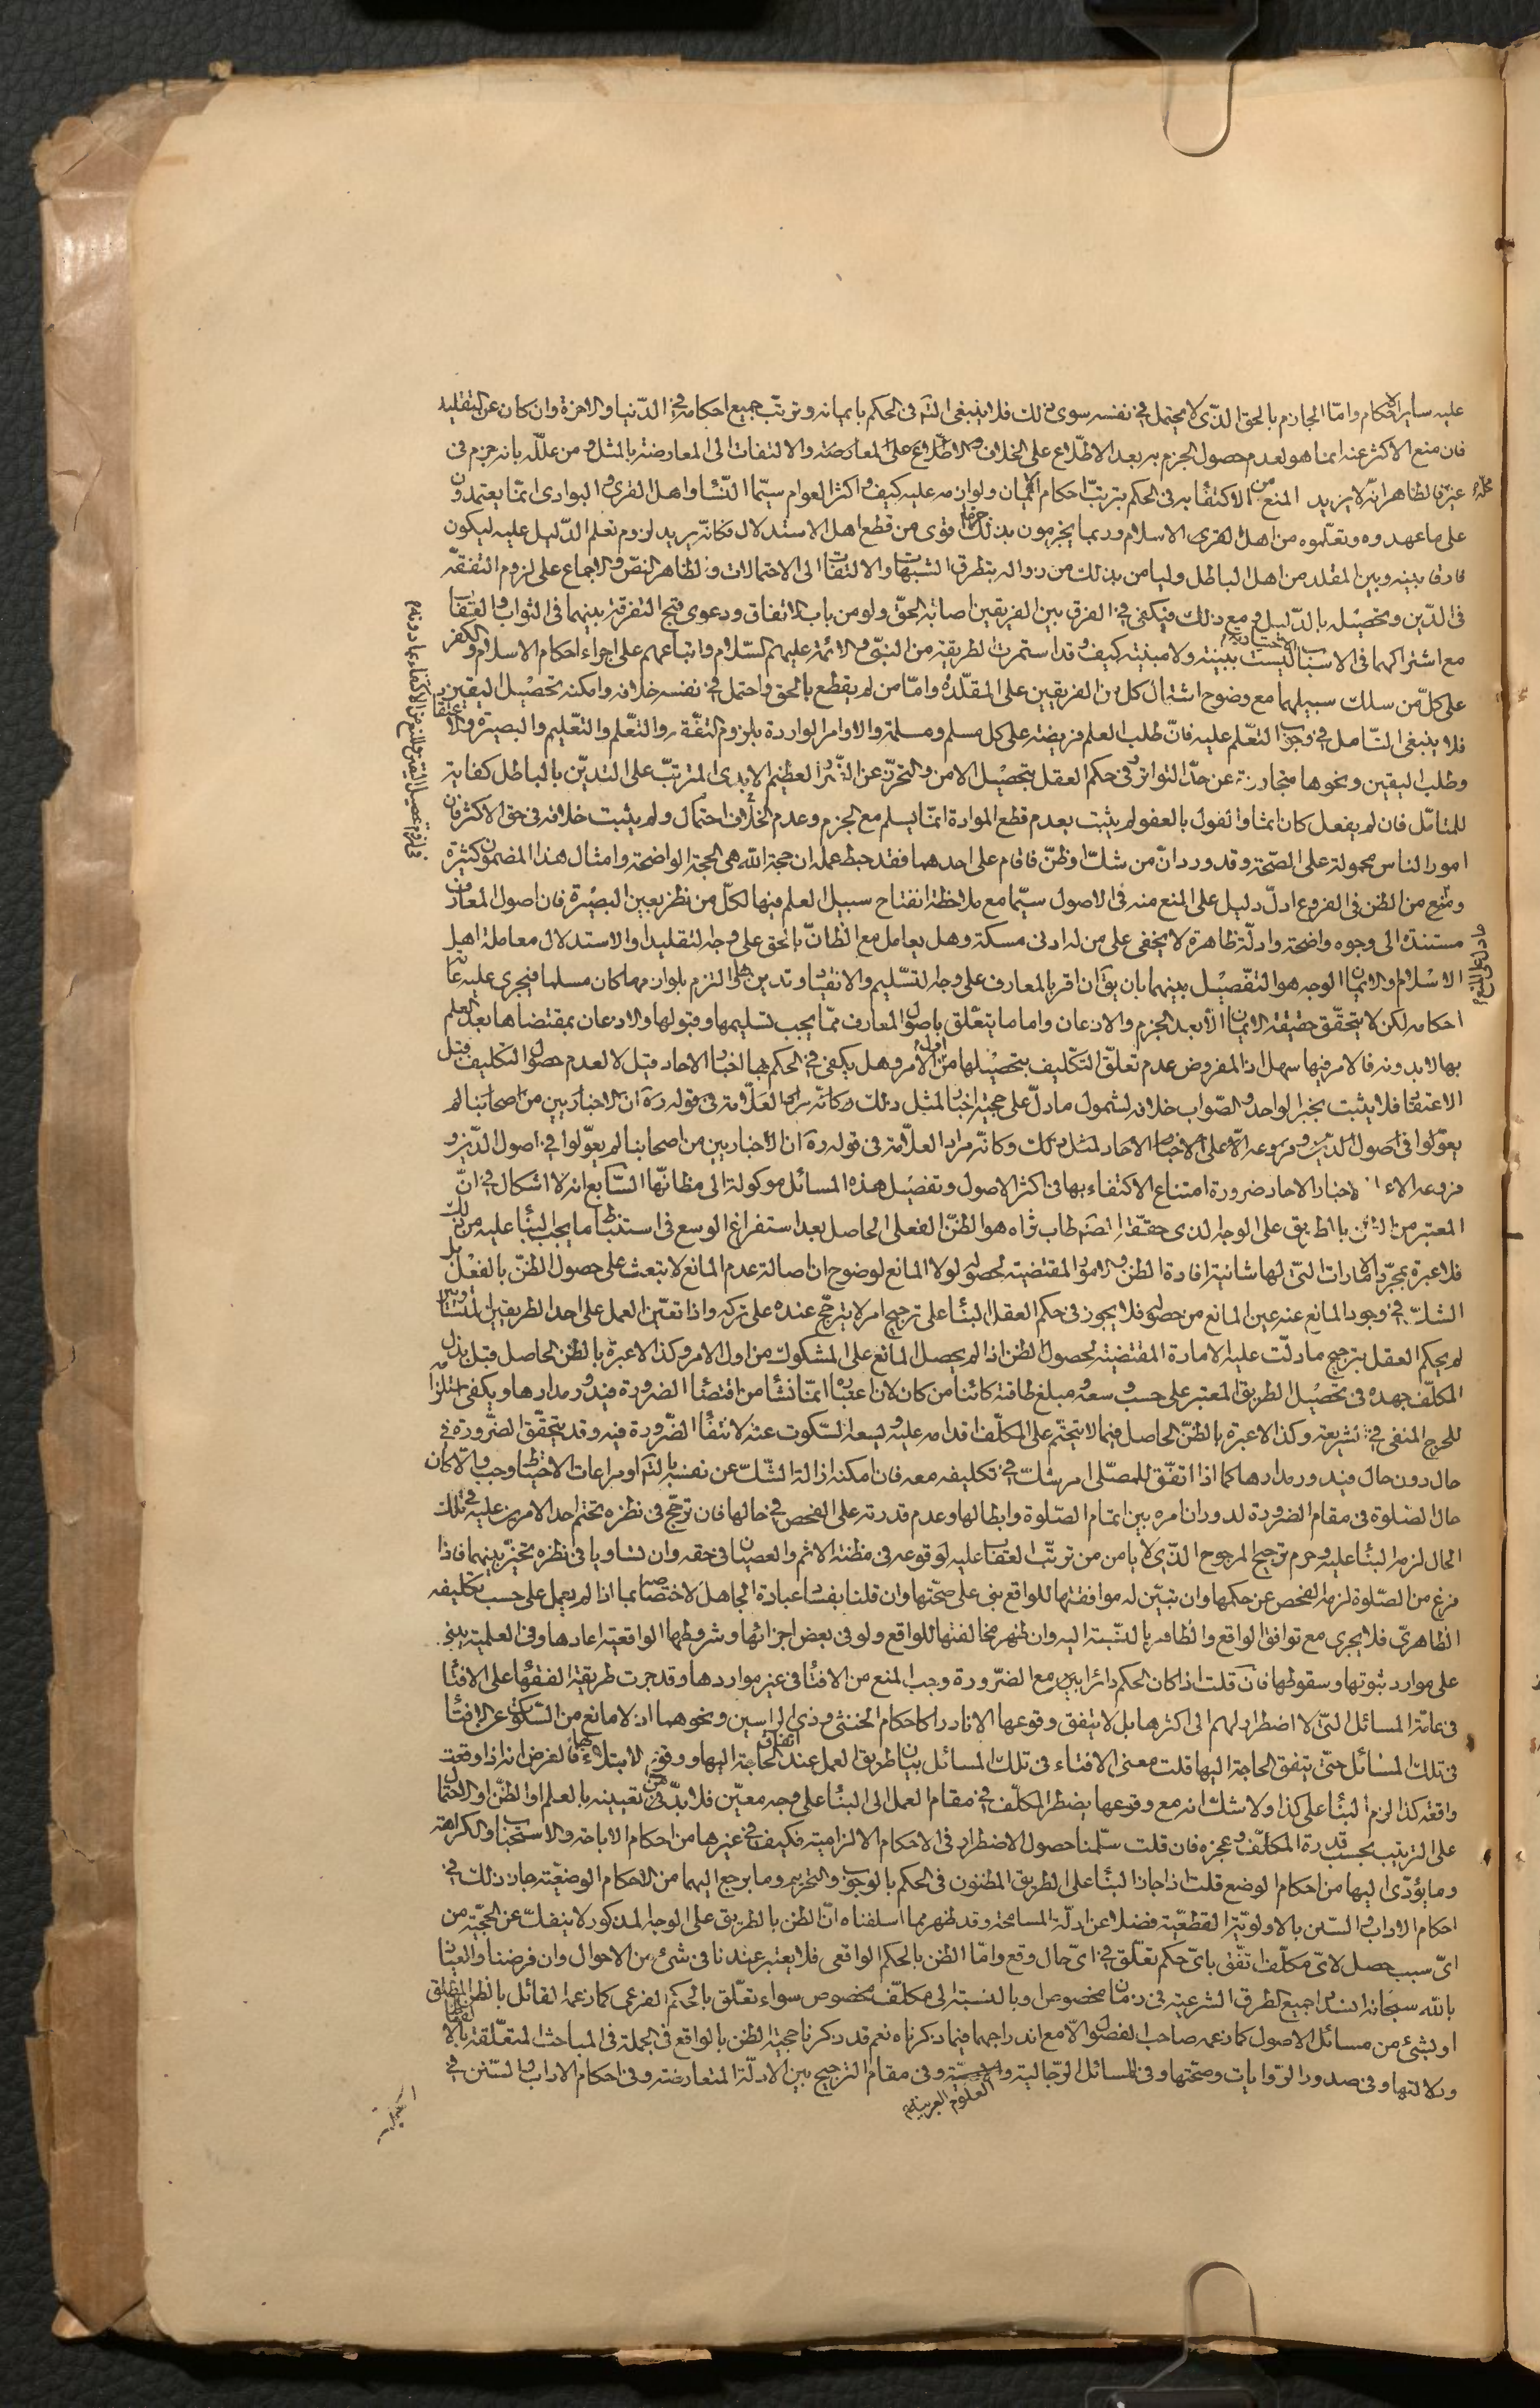 عليه ساير الاحكام وامّا الجازم بالحق الذى لا يحتمل فى نفسه سوى ذلك فلا ينبغى التم فى الحكم بايمانه وترتب جميع احكامه فى الدنيا والاخرة وان كان عن التقليد
فان منع الاكثر عنه انما هو لعدم حصول الجزم به بعد الاطلاع على الخلاف والاطلاع على المعارضة والالتفات الى المعارضة بالمثل ومن علله بانه جزم فى
غير محله فالظاهر انه لا يريد المنع من الاكتفاء به فى الحكم بترتب احكام الايمان ولوازمه عليه كيف واكثر العوام سيّما النساء واهل القرى والبوادى انما يعتمدون
على ما عهدوه وتعلموه من اهل القرى الاسلام وربما يجزمون بذلك جزما قوى من قطع اهل الاستدلال فكانه يريد لزوم تعلم الدليل عليه ليكون
فارقا بينه وبين المقلد من اهل الباطل وليامن بذلك من زواله بتطرق الشبهات والالتفات الى الاحتمالات وظاهر النص والاجماع على لزوم التفقه
فى الدين وتحصيله بالدليل ومع ذلك فيكفى فى الفرق بين الفريقين اصابة الحق ولو من باب الاتفاق ودعوى قبح التفرقة بينهما فى الثواب والعقاب
مع اشتراكهما فى الاسباب الاختيارية ليست ببينة ولا مبينة كيف وقد استمرت طريقة من النبى والائمة عليهم السلام واتباعهم على اجراء احكام الاسلام والكفر
على كل من سلك سبيلهما مع وضوح اشتمال كل من الفريقين على المقلدة وامّا من لم يقطع بالحق واحتمل فى نفسه خلافه وامكنه تحصيل اليقين والاعتقاد
فلا ينبغى التامل فى وجوب التعلم عليه فان طلب العلم فريضة على كل مسلم ومسلمة والاوامر الواردة بلزوم التفقه والتعلم والتعليم والبصيرة
وطلب اليقين ونحوها متجاوزة عن حد التواتر وفى حكم العقل بتحصيل الامن والتحرز عن الضرر العظيم الابدى المترتب على التدين بالباطل كفاية
للمتامل فان لم يفعل كان اثما والقول بالعفو لم يثبت بعدم قطع الموادة انما يسلم مع الجزم وعدم الخلاف احتمال ولم يثبت خلافه فى حق الاكثر فان
امور الناس محمولة على الصحة وقد ورد ان من شك او ظن فاقام على احدهما فقد حبط عمله ان حجة الله هى الحجة الواضحة وامثال هذا المضمون كثيرة
ومنع من الظن فى الفروع ادل دليل على المنع منه فى الاصول سيما مع ملاحظة انفتاح سبيل العلم فيها لكل من نظر بعين البصيرة فان اصول المعارف
مستندة الى وجوه واضحة وادلة ظاهرة لا يخفى على من له ادنى مسكة وهل يعامل مع الظان بالحق على وجه التقليد او الاستدلال معاملة اهل
الاسلام والايمان الوجه هو التفصيل بينهما بان يق ان اقر بالمعارف على وجه التسليم والانقياد وتدين بها والتزم بلوازمها كان مسلما فيجرى عليه عامة
احكامه لكن لا يتحقق حقيقة الايمان الا بعد الجزم والاذعان واما ما يتعلق باصول المعارف مما يجب تسليمها وقبولها والاذعان بمقتضاها بعد العلم
بها لا بدونه فالامر فيها سهل اذ المفروض عدم تعلق التكليف بتحصيلها من اول الامر وهل يكفى فى الحكم بها اخبار الاحاد قيل لا لعدم حصول التكليف قبل
الاعتقاد فلا يثبت بخبر الواحد والصواب خلافه لشمول ما دل على حجية اخبار لمثل ذلك وكانه مراد العلامة فى قوله ره ان الاخباريين من اصحابنا لم
يعولوا فى اصول الدين وفروعه الا على الاخبار الاحاد لمثل ذلك وكانه مراد العلامة فى قوله ره ان الاخباريين من اصحابنا لم يعولوا فى اصول الدين و
فروعه الا على اخبار الاحاد ضرورة امتناع الاكتفاء بها فى اكثر الاصول وتفصيل هذه المسائل موكولة الى مظانها السابع انه لا اشكال فى ان
المعتبر من الظن بالطريق على الوجه الذى حققه المصنف طاب ثراه هو الظن الفعلى الحاصل بعد استفراغ الوسع فى استنباط ما يجب البناء عليه من ذلك
فلا عبرة بمجرد الامارات التى لها شانية افادة الظن والامور المقتضية لحصوله لولا المانع لوضوح ان اصالة عدم المانع لا تبعث على حصول الظن بالفعل بل
الشك فى وجود المانع عنه عين المانع من حصوله فلا يجوز فى حكم العقل البناء على ترجيح امر لا يترجح عنده على تركه واذا تعين العمل على احد الطريقين المتساويين
لم يحكم العقل بترجيح ما دلت عليه الامارة المقتضية لحصول الظن اذا لم يحصل المانع على المشكوك من اول الامر وكذا لا عبرة بالظن الحاصل قبل بذل
المكلف جهده فى تحصيل الطريق المعتبر على حسب وسعه ومبلغ طاقته كائنا من كان لان اعتباره انما نشا من اقتضاء الضرورة فيدور مدارها ويكفى استلزامه
للحرج المنفى فى الشريعة وكذا لا عبرة بالظن الحاصل فيما لا يتحتم على المكلف اقدامه عليه ويسعه السكوت عنه لانتفاء الضرورة فيه وقد يتحقق الضرورة فى
حال دون حال فيدور مدارها كما اذا اتفق للمصلى امر شك فى تكليفه معه فان امكنه ازالة الشك عن نفسه بالتم او مراعات الاحتياط وجب والا كان
حال الصلوة فى مقام الضرورة لدوران امره بين اتمام الصلوة وابطالها وعدم قدرته على الفحص فى حالها فان ترجح فى نظره تحتم احد الامرين عليه فى تلك
الحال لزمه البناء عليه وحرم ترجيح المرجوح الذى لا يامن من ترتب العقاب عليه لوقوعه فى مظنة الاثم والعصيان فى حقه وان تساويا فى نظره تخير بينهما فاذا
فرغ من الصلوة لزمه الفحص عن حكمها وان تبين له موافقتها للواقع بنى على صحتها وان قلنا بفساد عبادة الجاهل لاختصاصه بما اذا لم يعمل على حسب تكليفه
الظاهرى فلا يجرى مع توافق الواقع والظاهر بالنسبة اليه وان ظهر مخالفتها للواقع ولو فى بعض اجزائها وشروطها الواقعية اعادها وفى العلمية يبنى
على موارد ثبوتها وسقوطها فان قلت اذا كان الحكم دائرا بين مع الضرورة وجب المنع من الافتاء فى غير مواردها وقد جرت طريقة الفقهاء على الافتاء
فى عامة المسائل التى لا اضطرار لهم الى اكثرها بل لا يتفق وقوعها الا نادرا كاحكام الخنثى وذى الراسين ونحوهما اذ لا مانع من السكوت عن الافتاء
فى تلك المسائل حتى يتفق الحاجة اليها قلت معنى الافتاء فى تلك المسائل بيان طريق العمل عند اتفاق الحاجة اليها ووقوع الابتلاء بها فالغرض انه اذا وقعت
واقعة كذا لزم البناء على كذا ولا شك انه مع وقوعها يضطر المكلف فى مقام العمل الى البناء على وجه معين فلا بد من تعيينه بالعلم او الظن او الاحتمال
على الترتيب بحسب قدرة المكلف وعجزه فان قلت سلمنا حصول الاضطرار فى الاحكام الالزامية فكيف فى غيرها من احكام الاباحة والاستحباب والكراهة
وما يؤدى اليها من احكام الوضع قلت اذا جاز البناء على الطريق المظنون فى الحكم بالوجوب والتحريم وما يرجع اليهما من الاحكام الوضعية جاز ذلك فى
احكام الاداب والسنن بالاولوية القطعية فضلا عن ادلة المسامحة وقد ظهر مما اسلفناه ان الظن بالطريق على الوجه المذكور لا ينفك عن الحجية من
اى سبب حصل لاى مكلف اتفق باى حكم تعلق فى اى حال وقع وامّا الظن بالحكم الواقعى فلا يعتبر عندنا فى شئ من الاحوال وان فرضنا والعياذ
بالله سبحانه انسداد جميع الطرق الشرعية فى زمان مخصوص او بالنسبة الى مكلف مخصوص سواء تعلق بالحكم الفرعى كما زعمه القائل بالظن المطلق
او بشئ من مسائل الاصول كما زعمه صاحب الفصول والا مع اندراجهما فيما ذكرناه نعم قد ذكرنا حجية الظن بالواقع فى الجملة فى المباحث المتعلقة بالالفاظ
ودلالتها وفى صدور الروايات وصحتها وفى المسائل الرجالية والعلوم العربية وفى مقام الترجيح بين الادلة المتعارضة وفى احكام الاداب والسنن فى